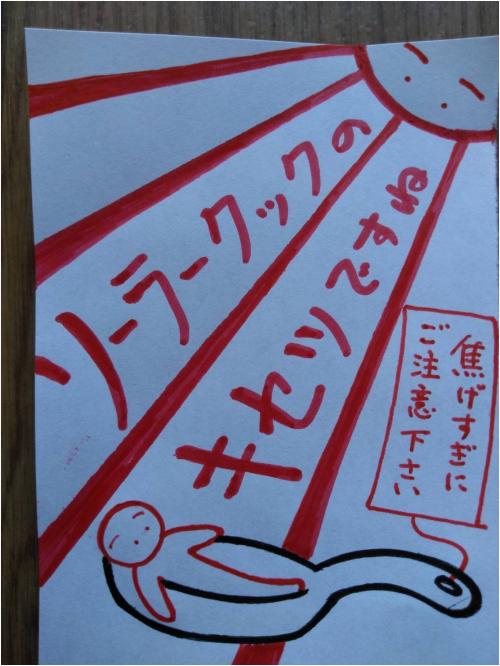 ソーラークックの
キセツですね
焦げすぎに
ご注意下さい